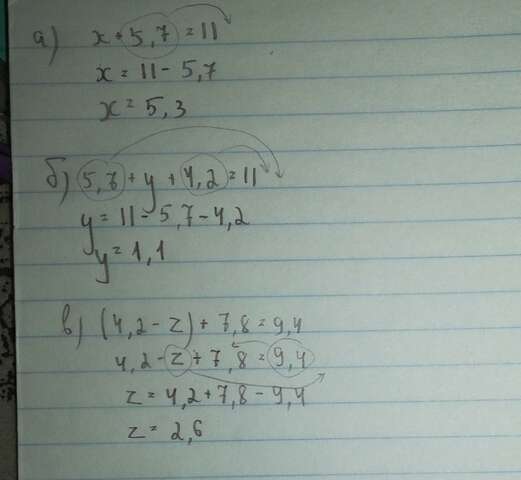 а) x + 5,7 = 11
x = 11 - 5,7
x = 5,3
б) 5,7 + y + 4,2 = 11
y = 11 - 5,7 - 4,2
y = 1,1
в) (4,2 - z) + 7,8 = 9,4
4,2 - z + 7,8 = 9,4
z = 4,2 + 7,8 - 9,4
z = 2,6